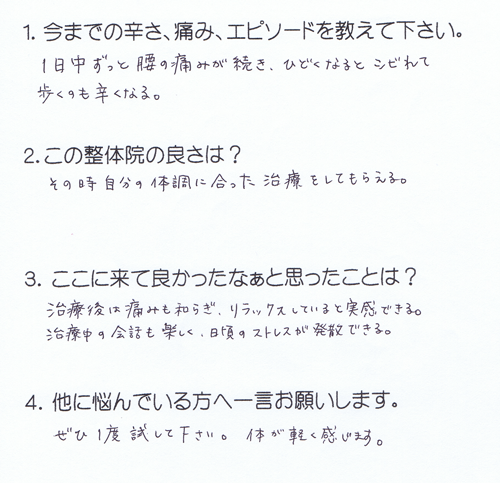 1. 今までの辛さ、痛み、エピソードを教えて下さい。
1日中ずっと腰の痛みが続き、ひどくなるとシビれて
歩くのも辛くなる。
2.この整体院の良さは？
その時自分の体調に合った治療をしてもらえる。
3. ここに来て良かったなぁと思ったことは？
治療後は痛みも和らぎ、リラックスしていると実感できる。
治療中の会話も楽しく、日頃のストレスが発散できる。
4. 他に悩んでいる方へ一言お願いします。
ぜひ1度試して下さい。体が軽く感じます。